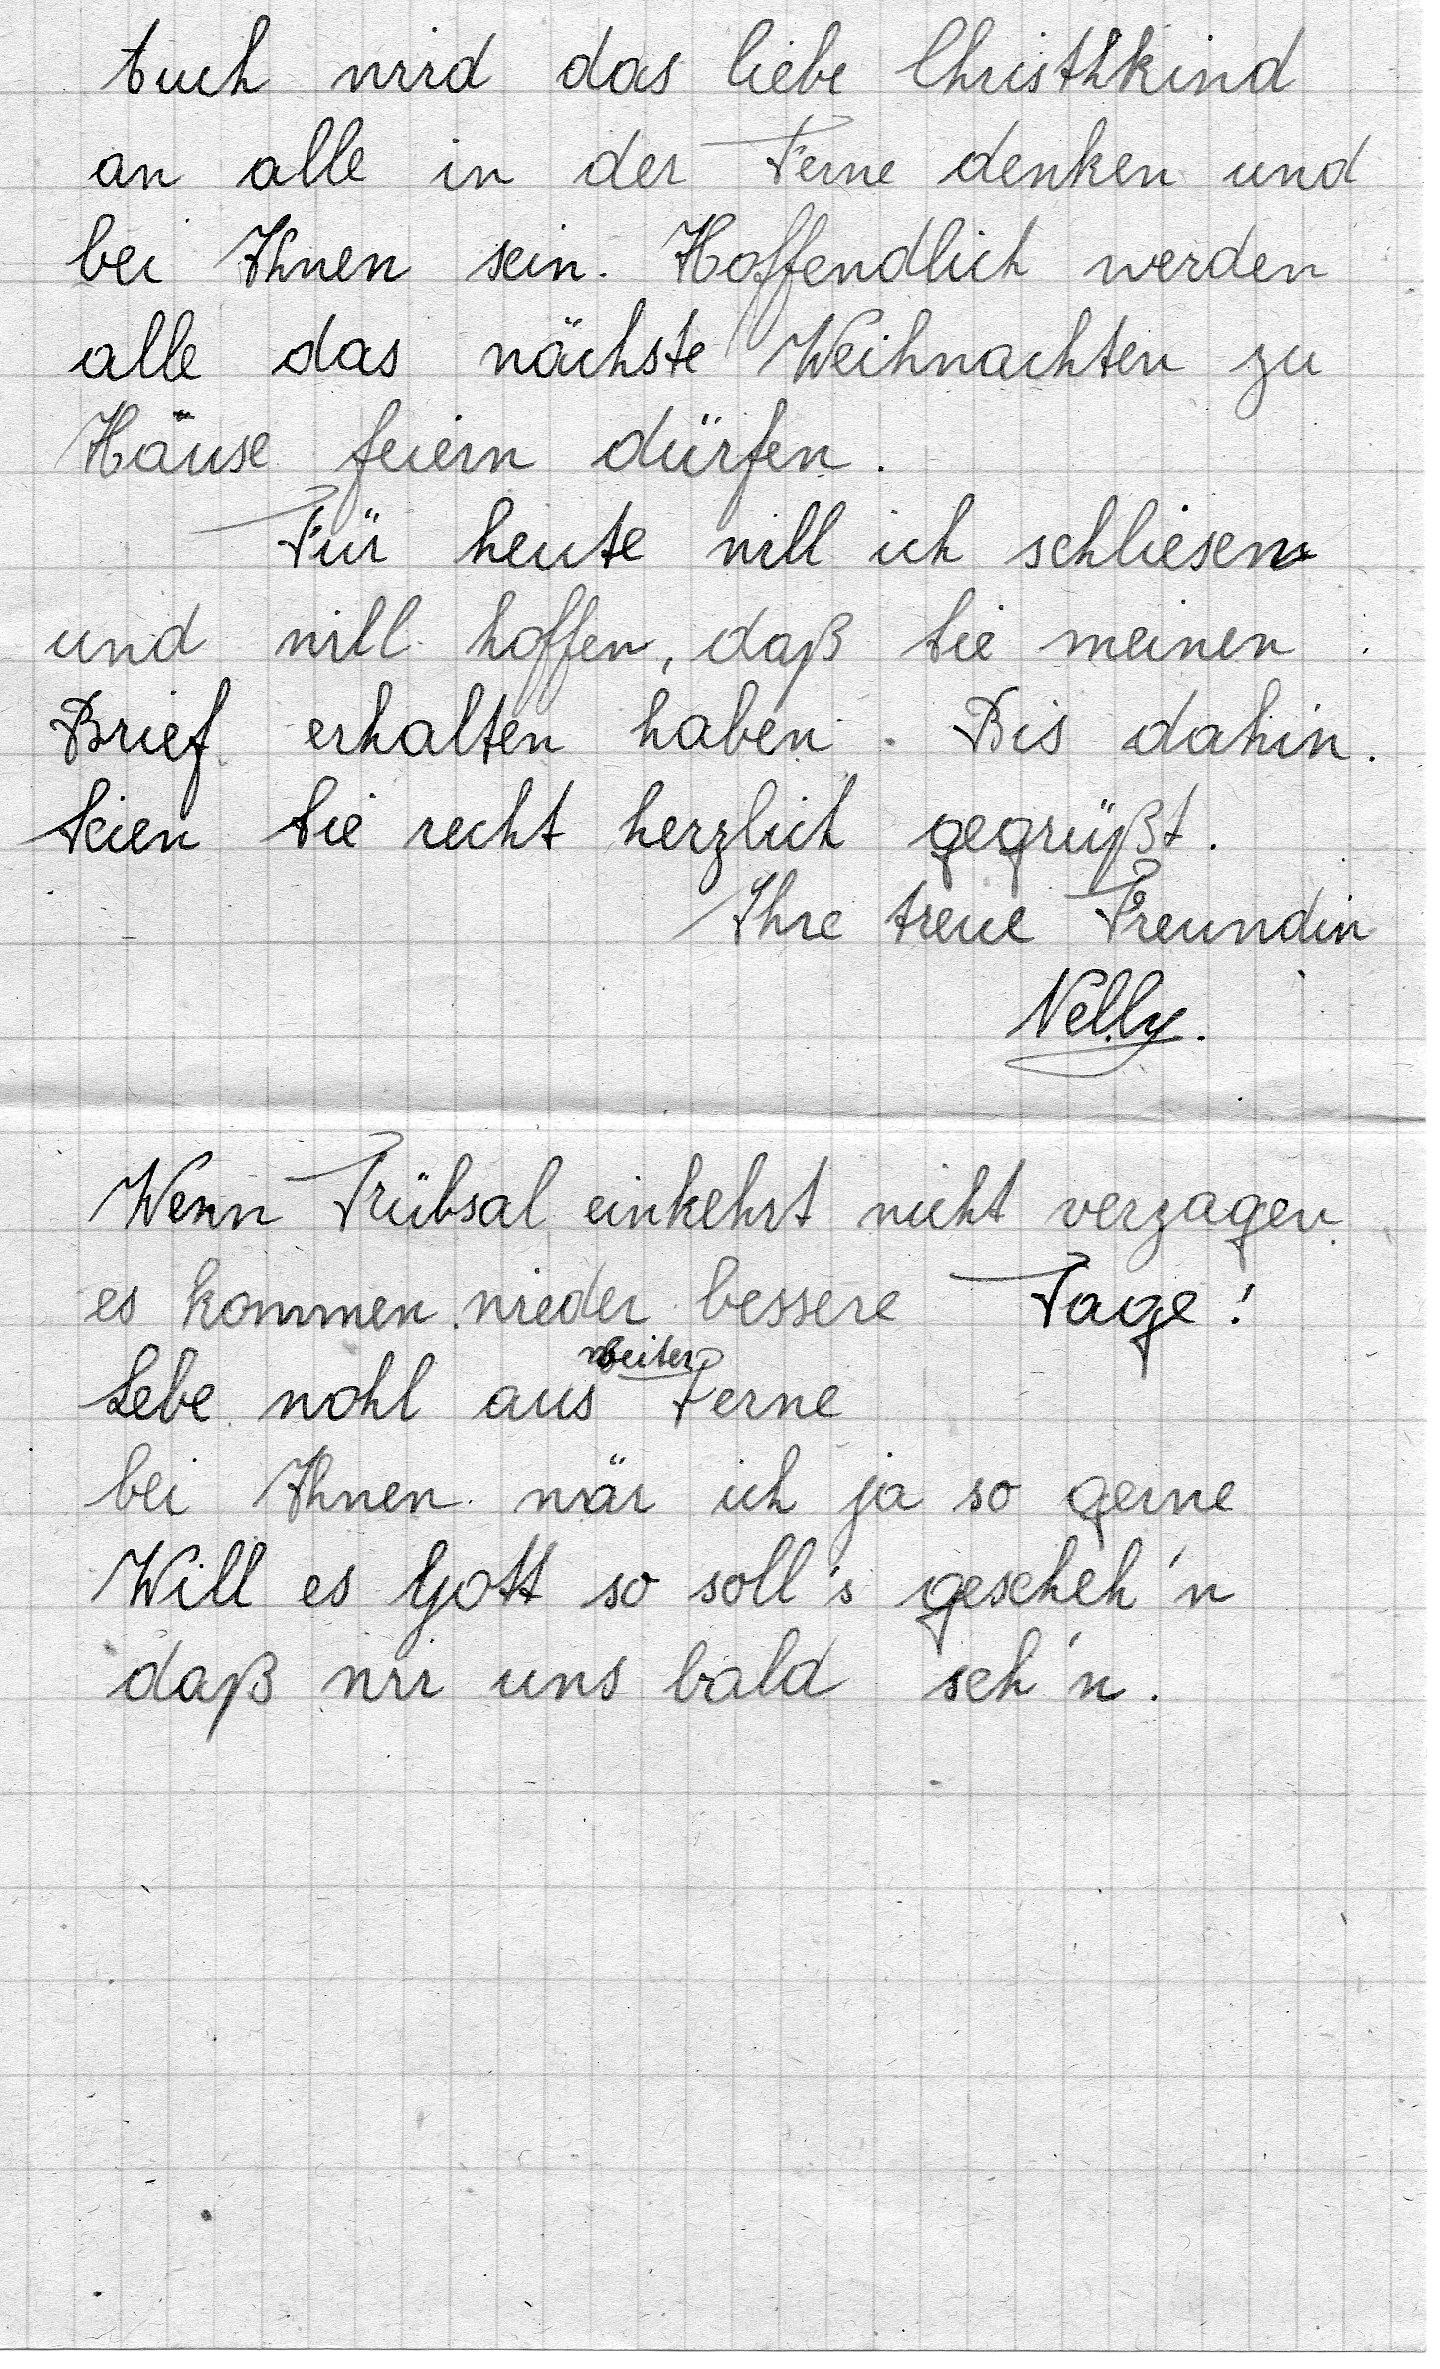 Auch wird das liebe Christhkind
an alle in der Ferne denken und
bei Ihnen sein. Hoffendlich werden
alle das nächste Weihnachten zu
Häuse feiern dürfen.
Für heute will ich schliesen
und will hoffen, daß Sie meinen
Brief erhalten haben. Bis dahin.
Seien Sie recht herzlich gegrüßt.
Ihre treue Freundin
Nelly.
Wenn Trübsal einkehrt nicht verzagen
es kommen wieder bessere Tage!
Lebe wohl aus weiter Ferne
bei Ihnen wär ich ja so gerne
Will es Gott so soll's gescheh'n
daß wir uns bald seh'n.